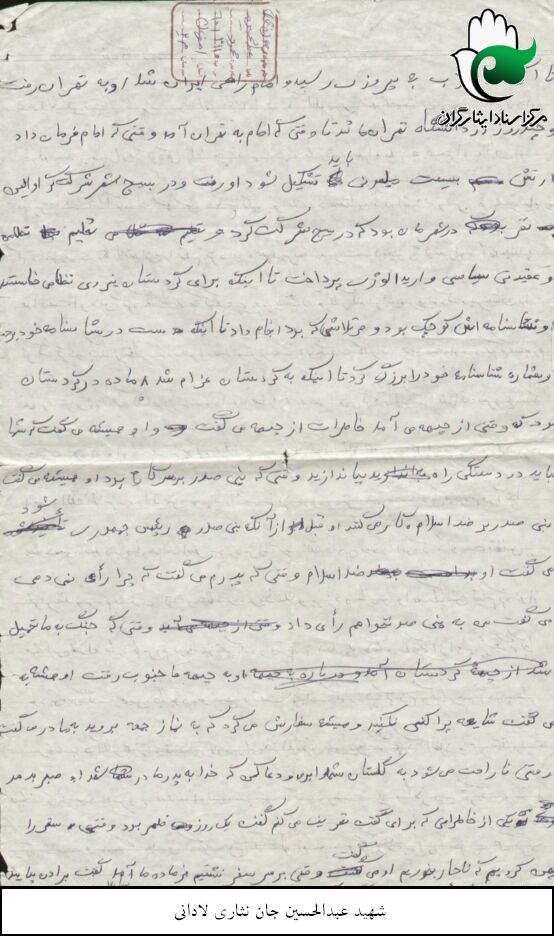 مرکز اسناد ایثارگران
به پیروزی رسید و امام راهی ایران شد او به تهران رفت
و چند روز در دانشگاه تهران ماند تا وقتی که امام به تهران آمد وقتی که امام فرمان داد
ارتش بیست میلیونی باید تشکیل شود او رفت و در بسیج شهر شرکت کرد اولین
نفر در شهرمان بود که در بسیج شرکت کرد و تعلیم
و عقیدتی سیاسی و ایدئولوژی پرداخت تا اینکه برای کردستان نیروی نظامی خواستند
او شناسنامه اش کوچک بود و هر تلاشی که بود انجام داد تا اینکه دست در شناسنامه خود برد
و شماره شناسنامه خود را بزرگ کرد تا اینکه به کردستان عزام شد ۸ ماده در کردستان
بود که وقتی از جبهه می آمد خاطرات از جبهه می گفت و او همیشه می گفت که شما
باید در دستگی راه بیاندازید وقتی که بنی صدر برسر کار بود او همیشه می گفت
بنی صدر بر ضد اسلام کار می کند او قبل از آنکه بنی صدر رئیس جمهوری شود
می گفت او ضد اسلام وقتی که پدرم می گفت که چرا رأی نمی دهی
می گفت من به بنی صدر نخواهم رأی داد وقتی که جنگ به ما تحمیل
شد از جبهه کردستان آمد و او به جبهه ما جنوب رفت او همیشه
می گفت شایعه پراکنی نکنید و همیشه سفارش می کرد که به نماز جمعه بروید به مادر می گفت
وقتی ناراحت می شود به گلستان شهدا برو و دعا کن که خدا به پدر مادر شهدا صبر بدهد
یکی از خاطراتی که برای گفت تعریف می کنم گفت یک روز ظهر بود وقتی سفر را
پهن کردیم که ناهار بخوریم او می گفت وقتی بر سر سفر نشستیم فرمانده ما آمد گفت برادران بیایید
شهید عبدالحسین جان نثاری لادانی